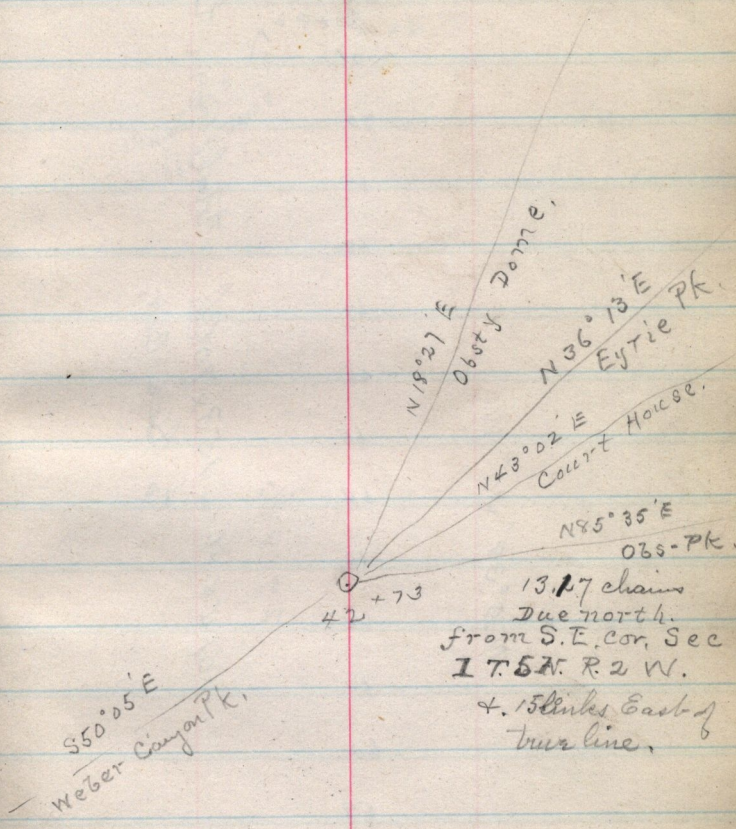 N18°27'E
Obsty Dome.
N36°13'E
Eyrie Pk.
N43°02'E
Court House.
N85°35'E
Obs-Pk.
42 +73
13.17 chains
Due north.
from S.E. cor. Sec
1 T.5N. R.2 W.
&. 15 links East of
true line.
S50°05'E
Weber Canyon Pk.